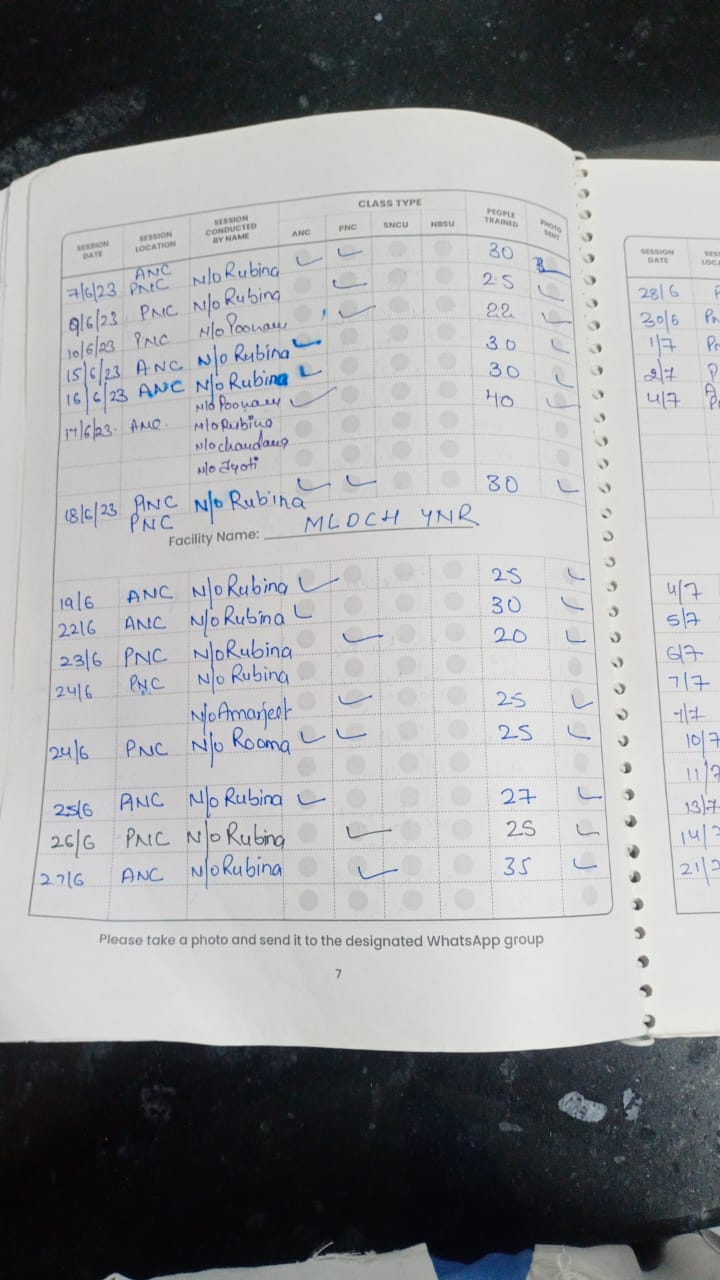 CLASS TYPE
SESSION DATE SESSION LOCATION SESSION CONDUCTED BY NAME ANC PNC SNCU NBSU PEOPLE TRAINED PHOTO SENT
7/6/23 ANC PNC N/o Rubina ✓ ✓ 30
9/6/23 PNC N/o Rubina ✓ 25 ✓
10/6/23 PNC N/o Poonam ✓ 22 ✓
15/6/23 ANC N/o Rubina ✓ 30 ✓
16/6/23 ANC N/o Rubina ✓ 30 ✓
17/6/23. ANC. N/o Poonam ✓ 40 ✓
N/o Rubina
N/o chandana
N/o Jyoti
18/6/23 ANC PNC N/o Rubina ✓ ✓ 30 ✓
Facility Name: MLDCH YNR
19/6 ANC N/o Rubina ✓ 25 ✓
22/6 ANC N/o Rubina ✓ 30 ✓
23/6 PNC N/o Rubina ✓ 20 ✓
24/6 PNC N/o Rubina
N/o Amarjeet ✓ 25 ✓
24/6 PNC N/o Rooma ✓ ✓ 25 ✓
25/6 ANC N/o Rubina ✓ 27 ✓
26/6 PNC N/o Rubina ✓ 25 ✓
27/6 ANC N/o Rubina ✓ 35 ✓
Please take a photo and send it to the designated WhatsApp group
7
SESSION DATE
28/6
30/6
1/7
2/7
4/7
4/7
5/7
6/7
7/7
7/7
10/7
13/7